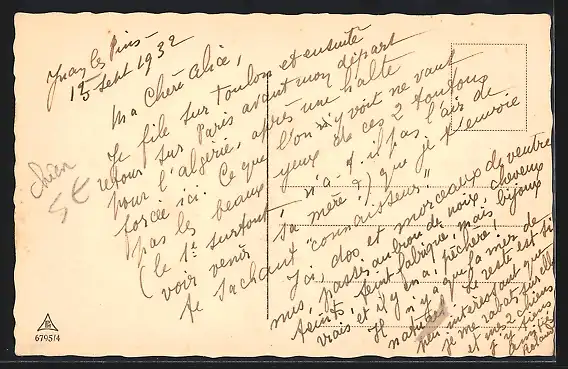 Juan les Pins
15 Sept 1932
Ma Chère Alice,
Je file sur Toulon et ensuite
retour sur Paris avant mon départ
pour l'algérie, après une halte
forcée ici. Ce que l'on y voit ne vaut
pas les beaux yeux de ces 2 toutous
(le 1er surtout n'a-t-il pas l'air de
voir venir sa mère?) que je t'envoie
te sachant "connaisseur"
Ici, dos et morceaux de ventre
nus, passés au brou de noix, cheveux
teints, teint fabriqué, mais bijoux
vrais et il y en a, pechère!
Il n'y a que la mer de
naturel. Le reste est si
peu intéressant que
je me rabats sur elle
et mes 2 chiens
amitiés
chien
5€
6795/4